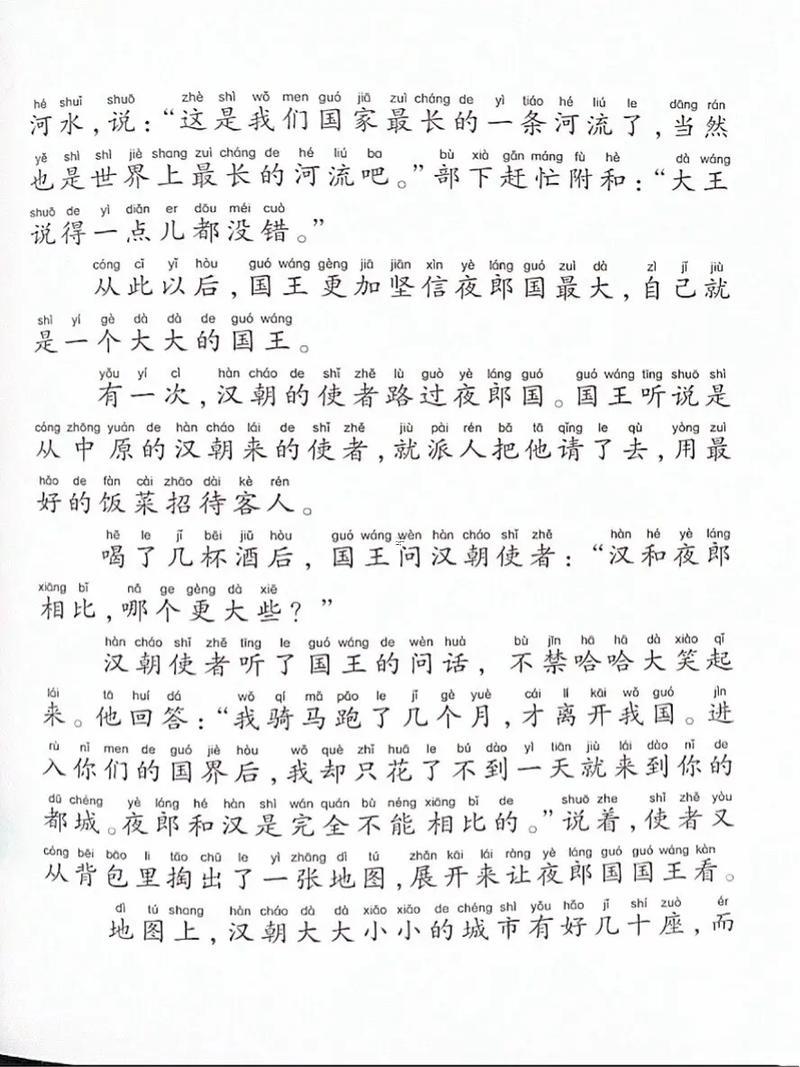 hé shuǐ shuō zhè shì wǒ men guó jiā zuì cháng de yì tiáo hé liú le dāng rán
河水，说：“这是我们国家最长的一条河流了，当然
yě shì shì jiè shang zuì cháng de hé liú ba bù xià gǎn máng fù hè dà wáng
也是世界上最长的河流吧。”部下赶忙附和：“大王
shuō de yì diǎn er dōu méi cuò
说得一点儿都没错。”
cóng cǐ yǐ hòu guó wáng gèng jiā jiān xìn yè láng guó zuì dà zì jǐ jiù
从此以后，国王更加坚信夜郎国最大，自己就
shì yí gè dà dà de guó wáng
是一个大大的国王。
yǒu yí cì hàn cháo de shǐ zhě lù guò yè láng guó guó wáng tīng shuō shì
有一次，汉朝的使者路过夜郎国。国王听说是
cóng zhōng yuán de hàn cháo lái de shǐ zhě jiù pài rén bǎ tā qǐng le qù yòng zuì
从中原的汉朝来的使者，就派人把他请了去，用最
hǎo de fàn cài zhāo dài kè rén
好的饭菜招待客人。
hē le jǐ bēi jiǔ hòu guó wáng wèn hàn cháo shǐ zhě hàn hé yè láng
喝了几杯酒后，国王问汉朝使者：“汉和夜郎
xiāng bǐ nǎ ge gèng dà xiē
相比，哪个更大些？”
hàn cháo shǐ zhě tīng le guó wáng de wèn huà bù jīn hā hā dà xiào qǐ
汉朝使者听了国王的问话，不禁哈哈大笑起
lái tā huí dá wǒ qí mǎ pǎo le jǐ gè yuè cái lí kāi wǒ guó jìn
来。他回答：“我骑马跑了几个月，才离开我国。进
rù nǐ men de guó jiè hòu wǒ què zhǐ huā le bú dào yì tiān jiù lái dào nǐ de
入你们的国界后，我却只花了不到一天就来到你的
dū chéng yè láng hé hàn shì wán quán bù néng xiāng bǐ de shuō zhe shǐ zhě yòu
都城。夜郎和汉是完全不能相比的。”说着，使者又
cóng bēi bāo li tāo chū le yì zhāng dì tú zhǎn kāi lái ràng yè láng guó guó wáng kàn
从背包里掏出了一张地图，展开来让夜郎国国王看。
dì tú shang hàn cháo dà dà xiǎo xiǎo de chéng shì yǒu hǎo jǐ shí zuò ér
地图上，汉朝大大小小的城市有好几十座，而